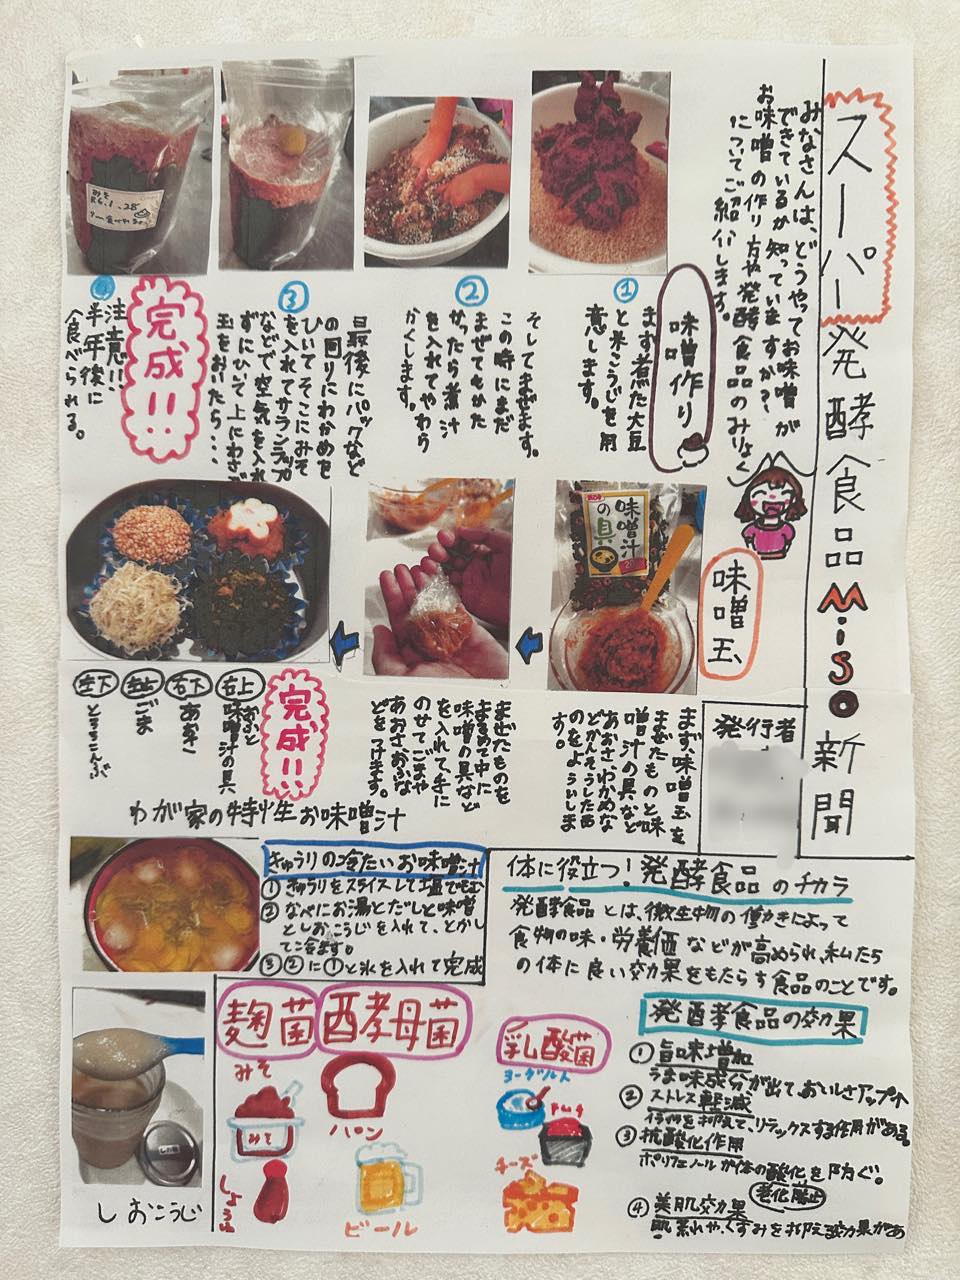 スーパー発酵食品Miso新聞
みなさんは、どうやってお味噌が
できているか知っていますか?
お味噌の作り方や発酵食品のみりょく
についてご紹介します。
味噌作り
①
まず煮た大豆
と米こうじを用
意します。
②
そしてまぜます。
この時にまだ
まぜてもかた
かったら煮汁
を入れてやわら
かくします。
③
最後にパックなど
の回りにわかめを
ひいてそこにみそ
を入れてサランラップ
などで空気を入れ
ずにひいて上にわさび
玉をおいたら・・・
完成!!
注意!!
半年後に
食べられる。
みそ
R6.1.28
味噌玉
味噌汁
の具
まず、味噌玉を
まぜたものと味
噌汁の具など
あおさ、わかめな
どかんそうしたも
のをよういしま
す。
まぜたものを
まるめて中に
味噌の具など
を入れて手に
のせてごまや
あおさおふな
どをつけます。
完成!!
右上
おふと
味噌汁の具
右下
あおさ
左上
ごま
左下
とろろこんぶ
発行者
わが家の特性お味噌汁
きゅうりの冷たいお味噌汁
①きゅうりをスライスして塩でもむ
②なべにお湯とだしと味噌
としおこうじを入れて、とかし
て冷ます。
③②に①と氷を入れて完成
しおこうじ
体に役立つ!発酵食品のチカラ
発酵食品とは、微生物の働きによって
食物の味・労養価などが高められ、私たち
の体に良い効果をもたらす食品のことです。
麹菌
みそ
みそ
しょうゆ
酵母菌
パン
ビール
乳酸菌
ヨーグルト
キムチ
チーズ
発酵食品の効果
①旨味増加
うま味成分が出て、おいしさアップ↑
②ストレス軽減
を抑えて、リラックスする作用がある。
③抗酸化作用
ポリフェノールが体の酸化を防ぐ。
老化防止
④美肌効果
肌荒れや、くすみを抑える効果があ